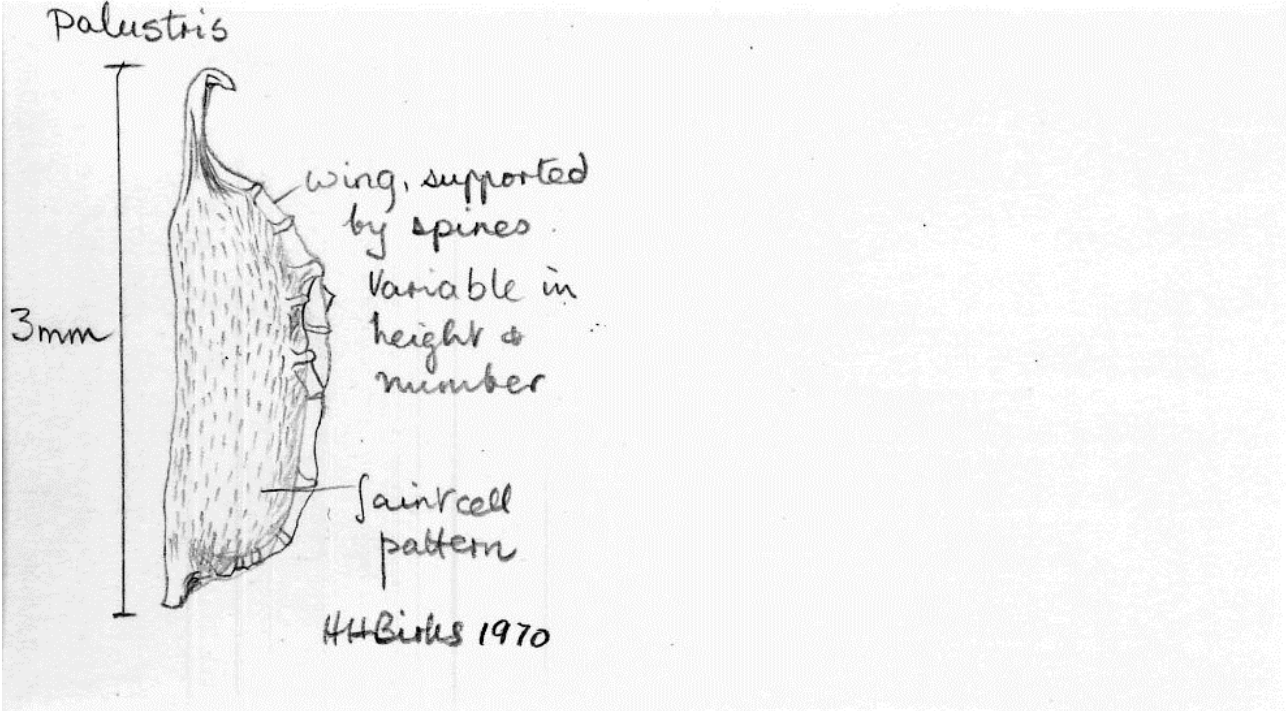 Palustris
wing, supported
by spines.
Variable in
height &
number
3mm
faint cell
pattern
HHBirks 1970